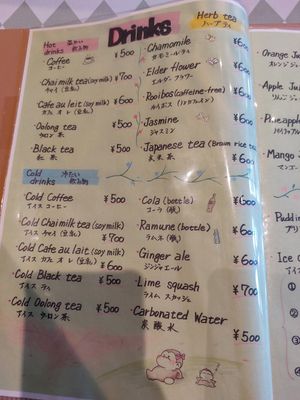 Drinks
Hot drinks 温かい飲み物
Coffee ¥500
コーヒー
Chai milk tea (soy milk) ¥700
チャイ (豆乳)
Cafe au lait (soy milk) ¥600
カフェ オ レ (豆乳)
Oolong tea ¥500
ウーロン 茶
Black tea ¥500
紅 茶
Herb tea
ハーブ ティ
Chamomile ¥600
カモミールティ
Elder flower ¥600
エルダー フラワー
Rooibos (caffeine-free) ¥600
ルイボス (ノンカフェイン)
Jasmine ¥600
ジャスミン
Japanese tea (Brown rice tea)
玄米茶 ¥600
Cold drinks 冷たい飲み物
Cold Coffee ¥500
アイス コーヒー
Cold Chai milk tea (soy milk)
アイス チャイ (豆乳) ¥700
Cold Cafe au lait (soy milk)
アイス カフェ オ レ (豆乳) ¥600
Cold Black tea ¥500
アイス ティ
Cold Oolong tea ¥500
アイス ウーロン 茶
Cola (bottle) ¥600
コーラ (瓶)
Ramune (bottle) ¥600
ラムネ (瓶)
Ginger ale ¥600
ジンジャエール
Lime squash ¥700
ライム スカッシュ
Carbonated Water
炭 酸 水 ¥500
Orange Ju
オレンジ ジ
Apple Ju
Pineapple
Mango
マンゴー
Puddin
プリ
Ice C
アイ